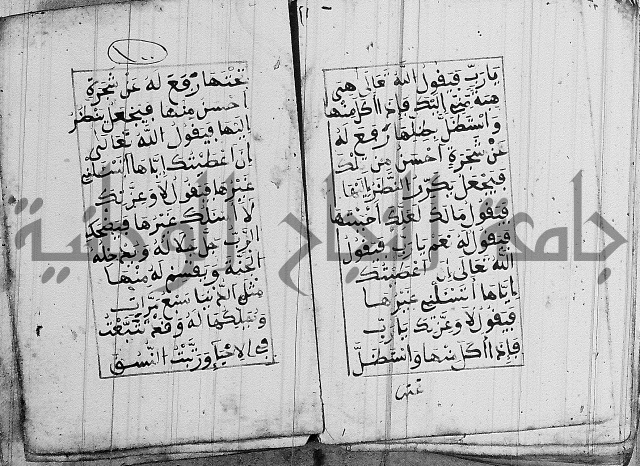 يا رب فيقول الله تعالى هي
هبة مني اليك فإذا اكل منها
واستظل بظلها رفع له
عن شجرة احسن من تلك
فيجعل يكرر النظر اليها
فيقول مالك لعلك احببتها
فيقول له نعم يا رب فيقول
الله تعالى ان اعطيتك
إياها اتسئلني غيرها
فيقول لا وعزتك يا رب
فإذا اكل منها واستظل
تحتها رفع له عن شجرة
احسن منها فيجعل ينظر
اليها فيقول الله تعالى
إن اعطيتك إياها اتسئلني
غيرها فيقول لا وعزتك
لا اسئلك غيرها فيضحك
الرب جل جلاله ويدخله
الجنة ويقسم له منها
مثل الدنيا سبع مرات
ويملكها له وقد تتبعت
في الاحياء ورتبت النسق
جامعة النجاح الوطنية